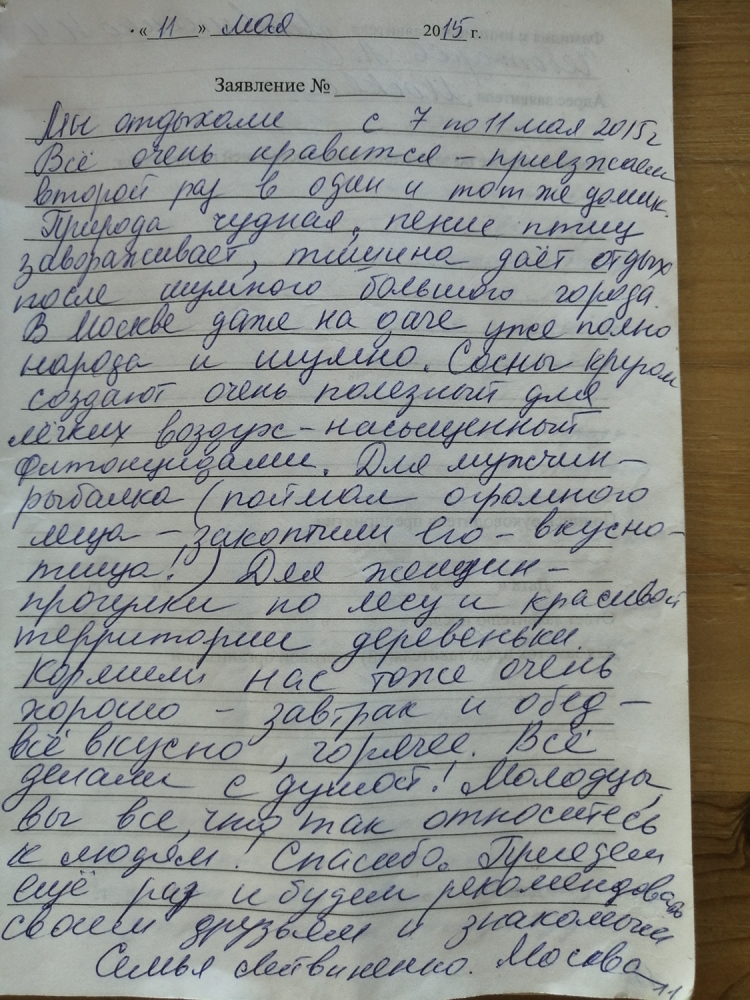 « 11 » мая 2015 г.
Заявление №
Мы отдыхали с 7 по 11 мая 2015г
Всё очень нравится – приезжаем
второй раз в один и тот же домик.
Природа чудная, пение птиц
завораживает, тишина даёт отдых
после шумного большого города.
В Москве даже на даче уже полно
народа и шумно. Сосны кругом
создают очень полезный для
лёгких воздух – насыщенный
фитонцидами. Для мужчин –
рыбалка (поймал огромного
леща – закоптили его – вкусно-
тища!) Для женщин –
прогулки по лесу и красивой
территории деревеньки.
Кормили нас тоже очень
хорошо – завтрак и обед –
всё вкусно, горячее. Всё
делали с душой! Молодцы,
вы все, что так относитесь
к людям! Спасибо. Приедем
ещё раз и будем рекомендовать
своим друзьям и знакомым
Семья Литвиненко. Москва